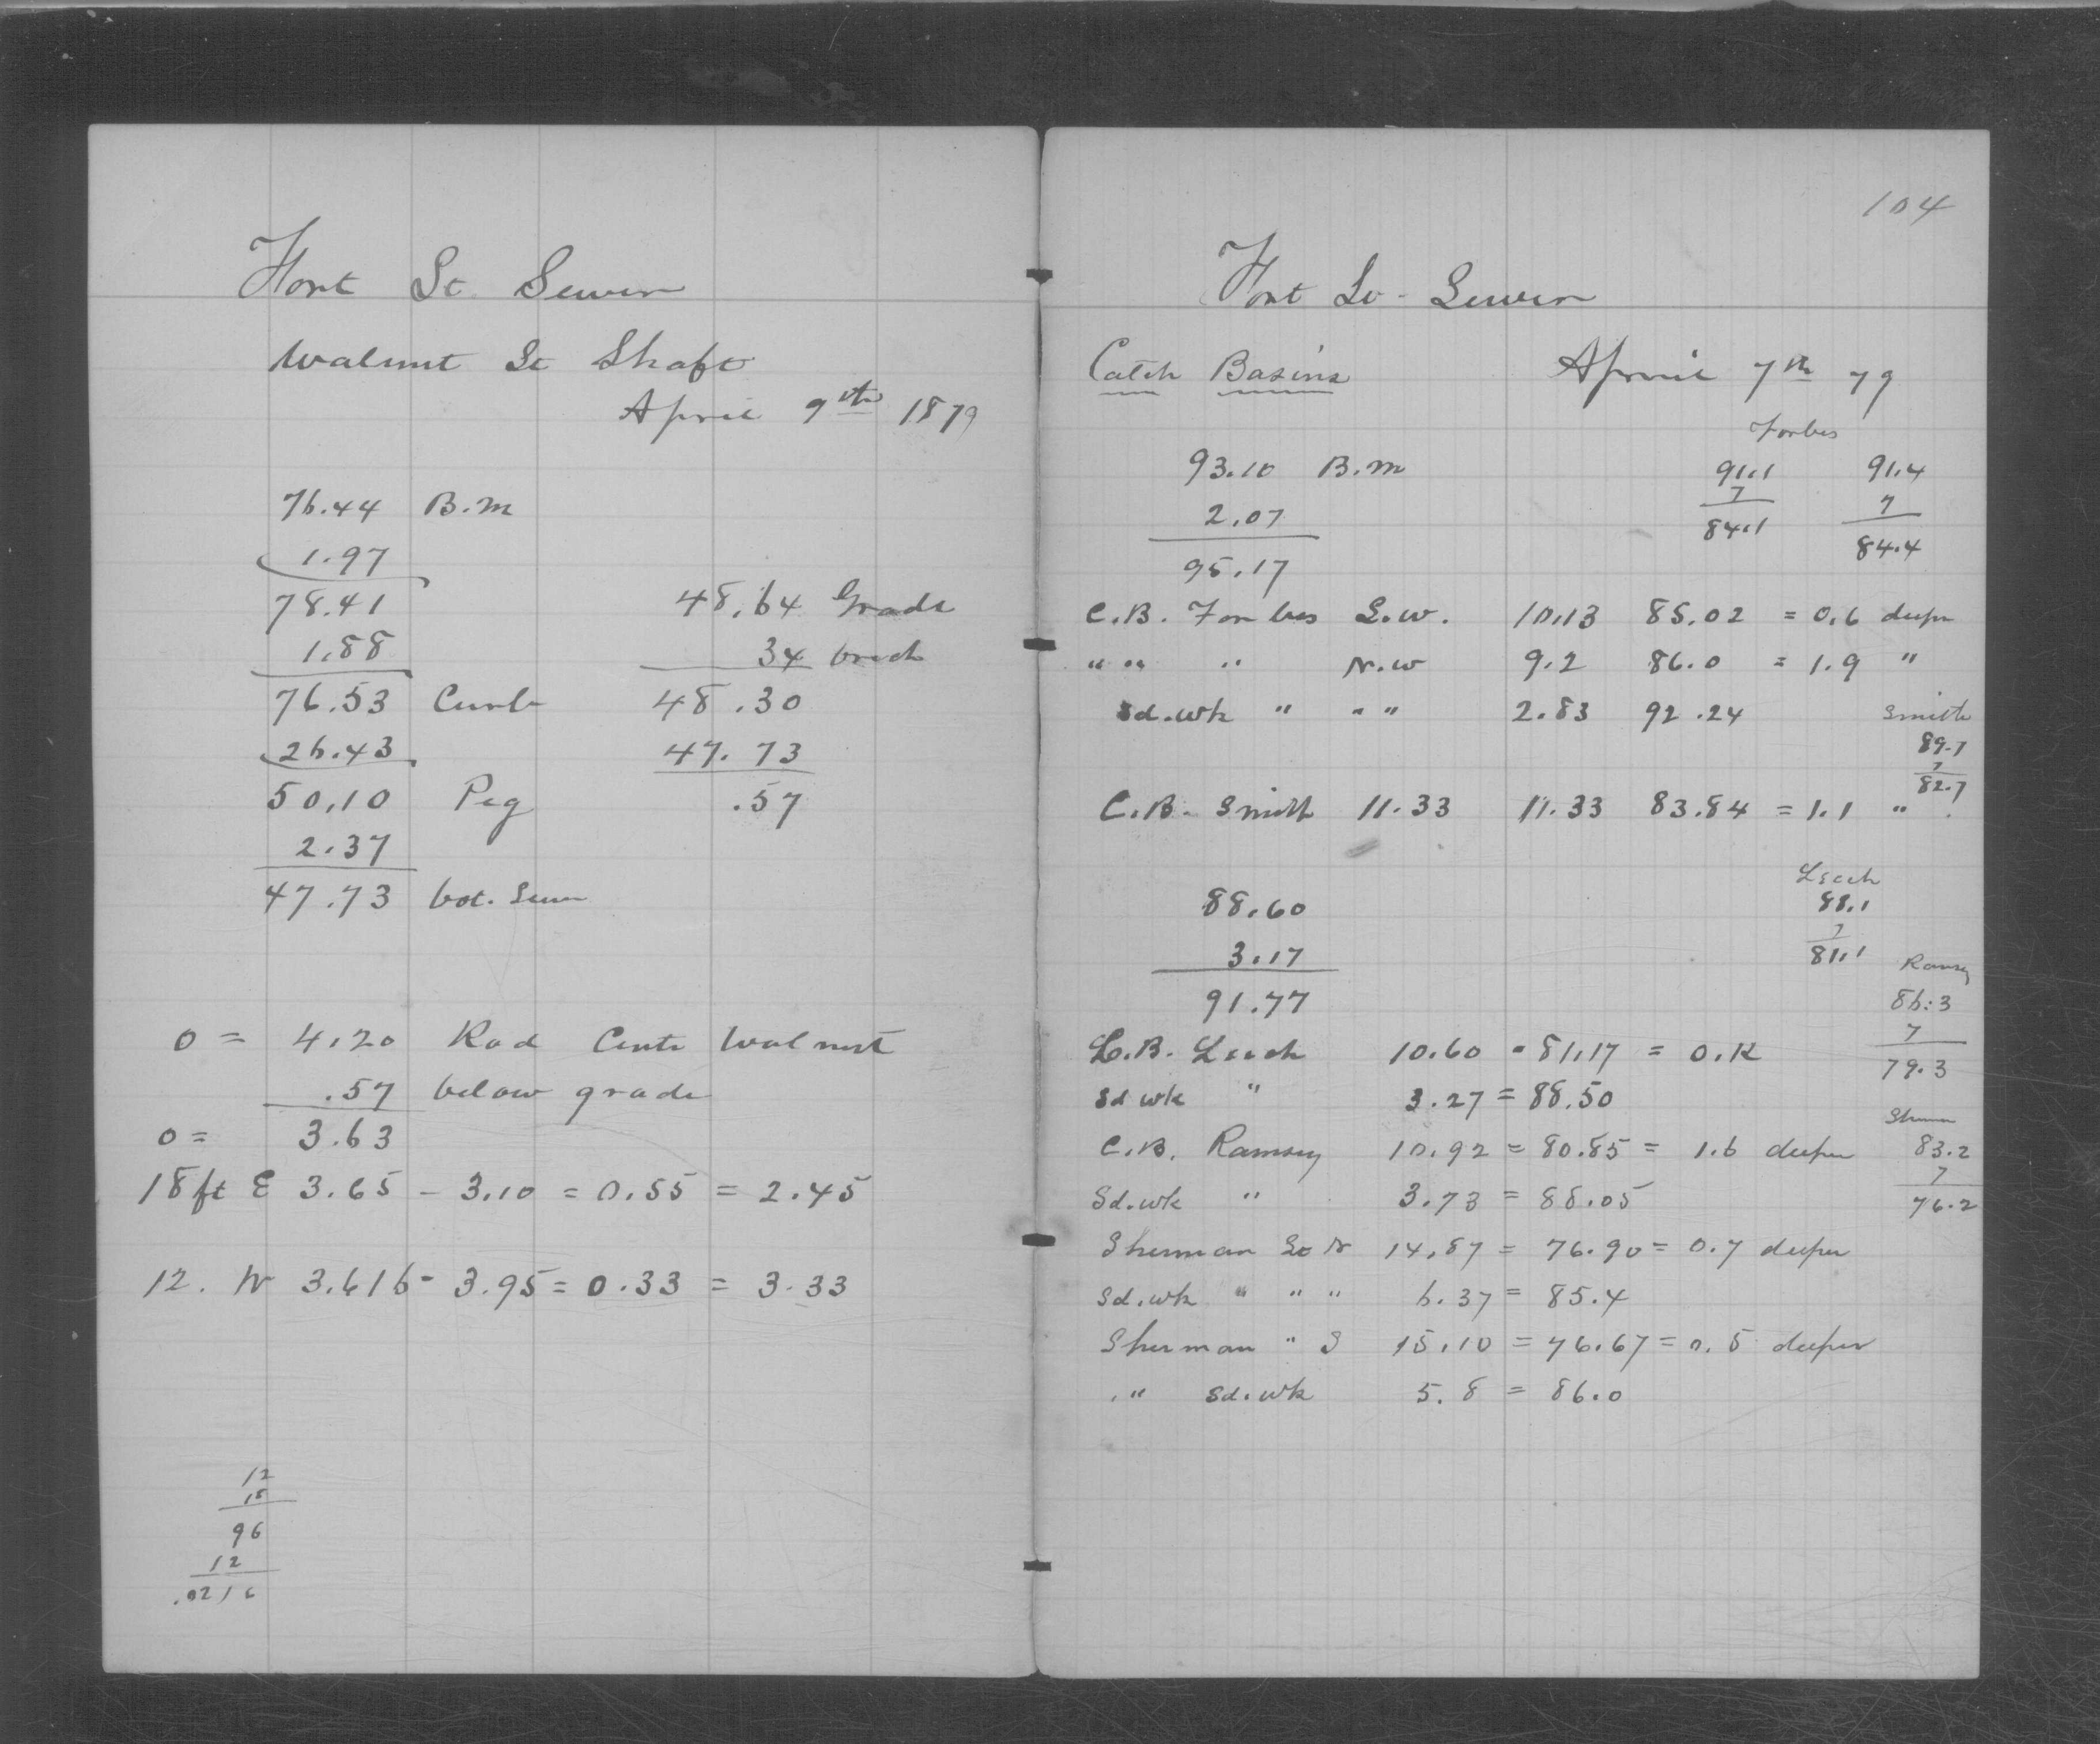 Front St Sewer
Walnut St Shaft
April 9th 1879
76.44 B.M
1.97
78.41
48.64 Grade
1.88
34 brick
76.53 Curb
48.30
26.43
47.73
50.10 Peg
.57
2.37
47.73 bot. Sewer
0 = 4.20 Rod Centr Walnut
.57 below grade
0 = 3.63
18 ft E 3.65 - 3.10 = 0.55 = 2.45
12. W 3.616 - 3.95 = 0.33 = 3.33
12
18
96
12
.0216
104
Front St - Sewer
Catch Basins April 7th 79
Forbes
93.10 B.M
91.1 91.4
7 7
2.07
84.1 84.4
95.17
C.B. Forbes S.W. 10.13 85.02 = 0.6 deepr
" " " N.W 9.2 86.0 = 1.9 "
Sd.wk " " " 2.83 92.24
Smith
89.7
7
82.7
C.B. Smith 11.33 11.33 83.84 = 1.1 "
Leech
88.1
7
81.1
88.60
3.17
91.77
Ramsey
86.3
7
79.3
C.B. Leech 10.60 = 81.17 = O.K
Sd wk " 3.27 = 88.50
Sherman
83.2
7
76.2
C.B. Ramsey 10.92 = 80.85 = 1.6 deeper
Sd.wk " 3.73 = 88.05
Sherman St N 14.87 = 76.90 = 0.7 deeper
Sd.wk " " " 6.37 = 85.4
Sherman " S 15.10 = 76.67 = 0.5 deeper
" Sd.wk 5.8 = 86.0